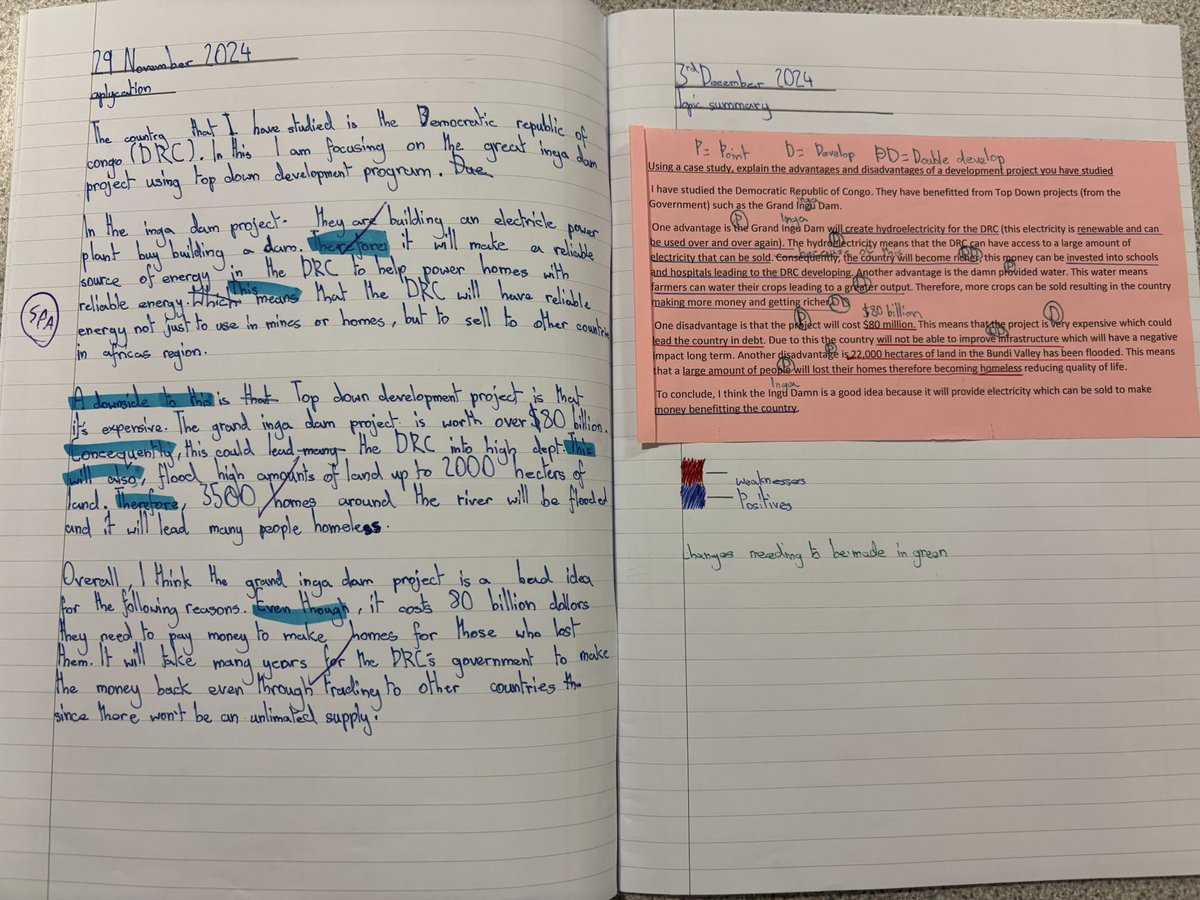 29 November 2024
aplycation
The country that I have studied is the Democratic republic of
congo (DRC). In this I am focusing on the great inga dam
project using top down development program. Due
In the inga dam project. they are building an electricle power
plant buy building a dam. Therefore, it will make a reliable
source of energy in the DRC to help power homes with
reliable energy. Which This means that the DRC will have reliable
SPA
energy not just to use in mines or homes, but to sell to other countries
in africas region.
A downside to this is that Top down development project is that
it's expensive. The grand inga dam project is worth over $80 billion.
Concequently, this could lead many the DRC into high dept. This
will also, flood high amounts of land up to 2000 hecters of
land. Therefore, 3500 homes around the river will be flooded
and it will lead many people homeless.
Overall, I think the grand inga dam project is a bead idea
for the following reasons. Even though, it costs 80 billion dollors
they need to pay money to make homes for those who lost
them. It will take many years for the DRC's government to make
the money back even through trading to other countries th
since there won't be an unlimated supply.
3rd December 2024
Topic summary
P = Point D = Develop DD = Double develop
Using a case study, explain the advantages and disadvantages of a development project you have studied
I have studied the Democratic Republic of Congo. They have benefitted from Top Down projects (from the
inga
Government) such as the Grand Ingu Dam.
P Inga
One advantage is the Grand Ingu Dam will create hydroelectricity for the DRC (this electricity is renewable and can
D
be used over and over again). The hydroelectricity means that the DRC can have access to a large amount of
because of this DD
electricity that can be sold. Consequently, the country will become richer, this money can be invested into schools
P
and hospitals leading to the DRC developing. Another advantage is the damn provided water. This water means
D
farmers can water their crops leading to a greater output. Therefore, more crops can be sold resulting in the country
DD
making more money and getting richer.
P $80 billion D
One disadvantage is that the project will cost $80 million. This means that the project is very expensive which could
DD
lead the country in debt. Due to this the country will not be able to improve infrastructure which will have a negative
P
impact long term. Another disadvantage is 22,000 hectares of land in the Bundi Valley has been flooded. This means
D
that a large amount of people will lost their homes therefore becoming homeless reducing quality of life.
Inga
To conclude, I think the Ingu Damn is a good idea because it will provide electricity which can be sold to make
money benefitting the country.
weaknesses
Positives
changes needing to be made in green